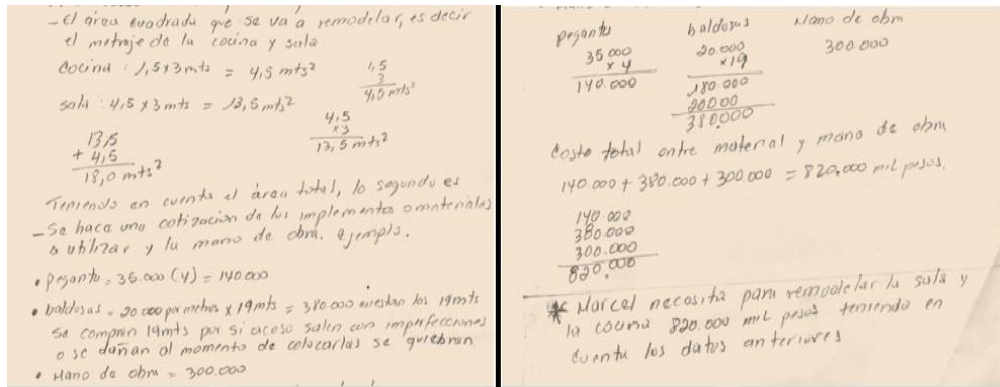 - El área cuadrada que se va a remodelar, es decir
el metraje de la cocina y sala.
Cocina: 1,5x3mts = 4,5 mts²
1,5
3
4,5 mts²
sala: 4,5 x 3 mts = 13,5 mts²
4,5
x3
13,5 mts²
13,5
+ 4,5
18,0 mts²
Teniendo en cuenta el área total, lo segundo es
- Se hace una cotización de los implementos o materiales
a utilizar y la mano de obra. Ejemplo.
• Pegante = 35.000 (4) = 140.000
• baldosas = 20.000 por metros x 19mts = 380.000 cuestan los 19mts
Se compran 19mts por si acaso salen con imperfecciones
o se dañan al momento de colocarlas se quiebran
• Mano de obra = 300.000
pegante
35.000
x 4
140.000
baldosas
20.000
x19
180.000
20000
380.000
Mano de obra
300.000
Costo total entre material y mano de obra
140.000 + 380.000 + 300.000 = 820.000 mil pesos.
140.000
380.000
300.000
820.000
* Marcel necesita para remodelar la sala y
la cocina 820.000 mil pesos teniendo en
cuenta los datos anteriores